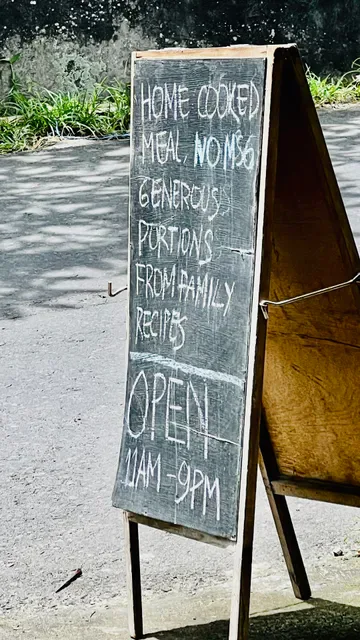 HOME COOKED
MEAL, NO MSG
GENEROUS
PORTIONS
FROM FAMILY
RECIPES
OPEN
11AM - 9PM